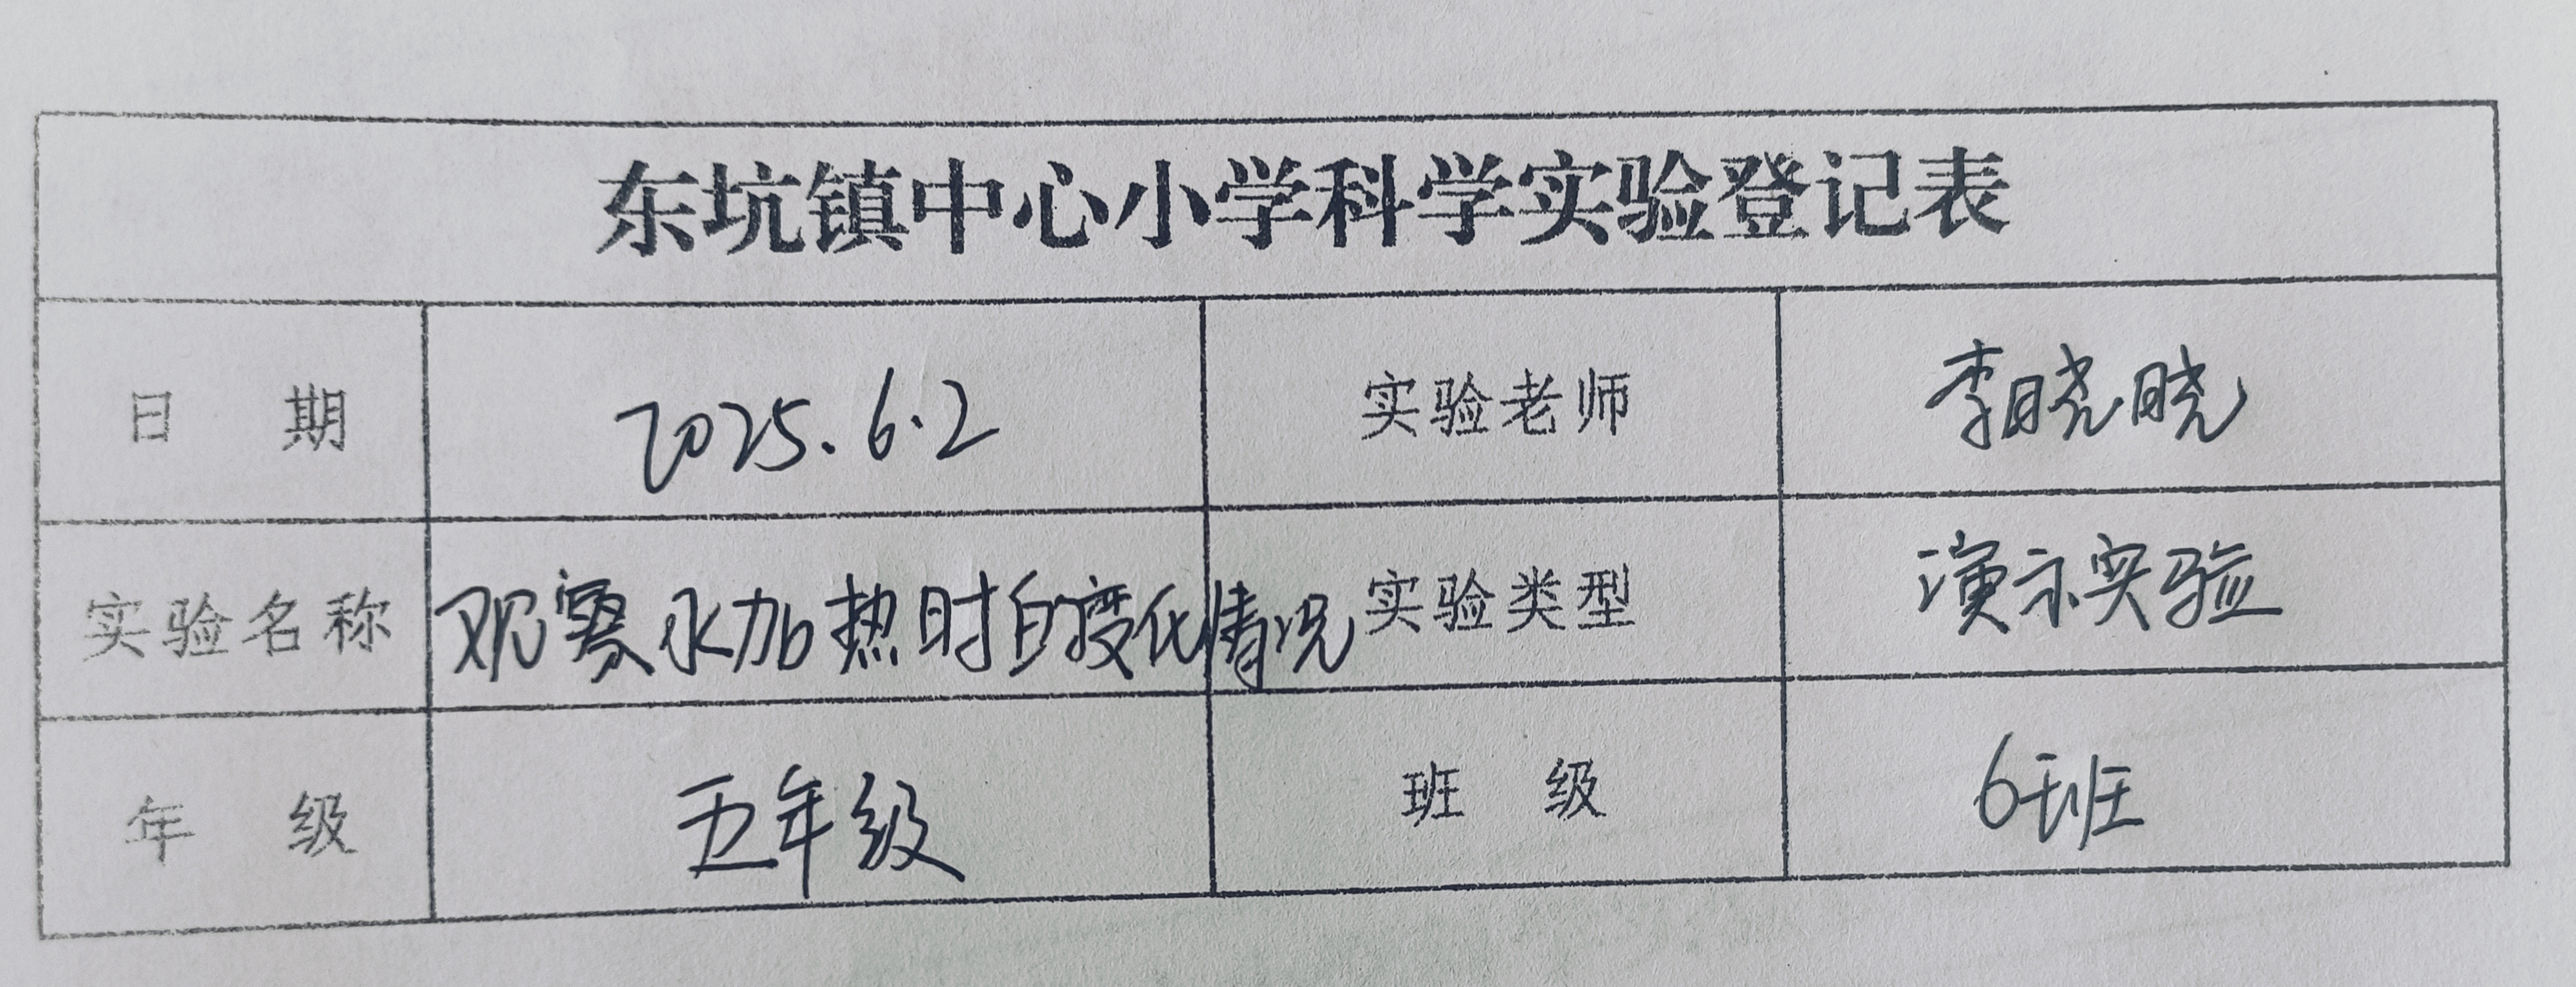 东坑镇中心小学科学实验登记表
日 期 2025.6.2 实验老师 李晓晓
实验名称 观察水加热时的变化情况 实验类型 演示实验
年 级 五年级 班 级 6班